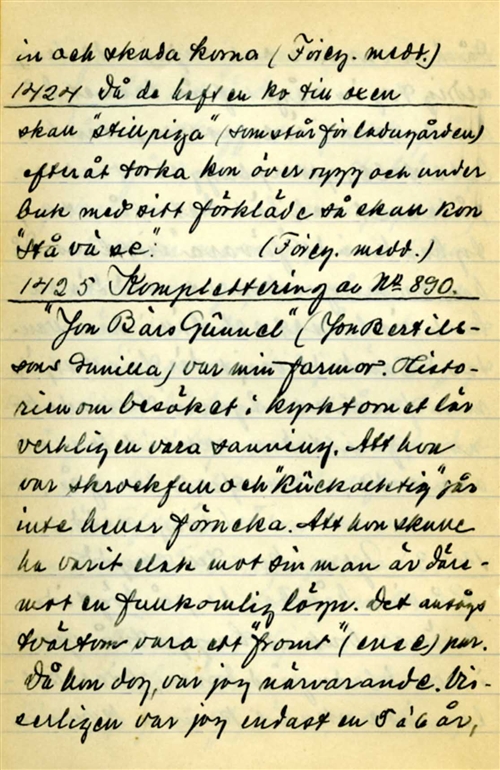 in och skada korna (Föreg. medd.)
1424 Då de haft en ko till oxen
skall "stillpiga" (som står för ladugården)
efteråt torka kon över rygg och under
buk med sitt förkläde så skall kon
"stå vä se". (Föreg. medd.)
1425 Komplettering av № 890.
"Jon Bärs Günnel" (Jon Bertils-
sons Gunilla) var min farmor. Histo-
rien om besöket i kyrktornet lär
verkligen vara sanning. Att hon
var skrockfull och "kückaktig" går
inte heller förneka. Att hon skulle
ha varit elak mot sin man är däre-
mot en fullkomlig lögn. Det ansågs
tvärtom vara ett "fromt" ( ) par.
Då hon dog, var jag närvarande. Vis-
serligen var jag endast en 5 à 6 år,